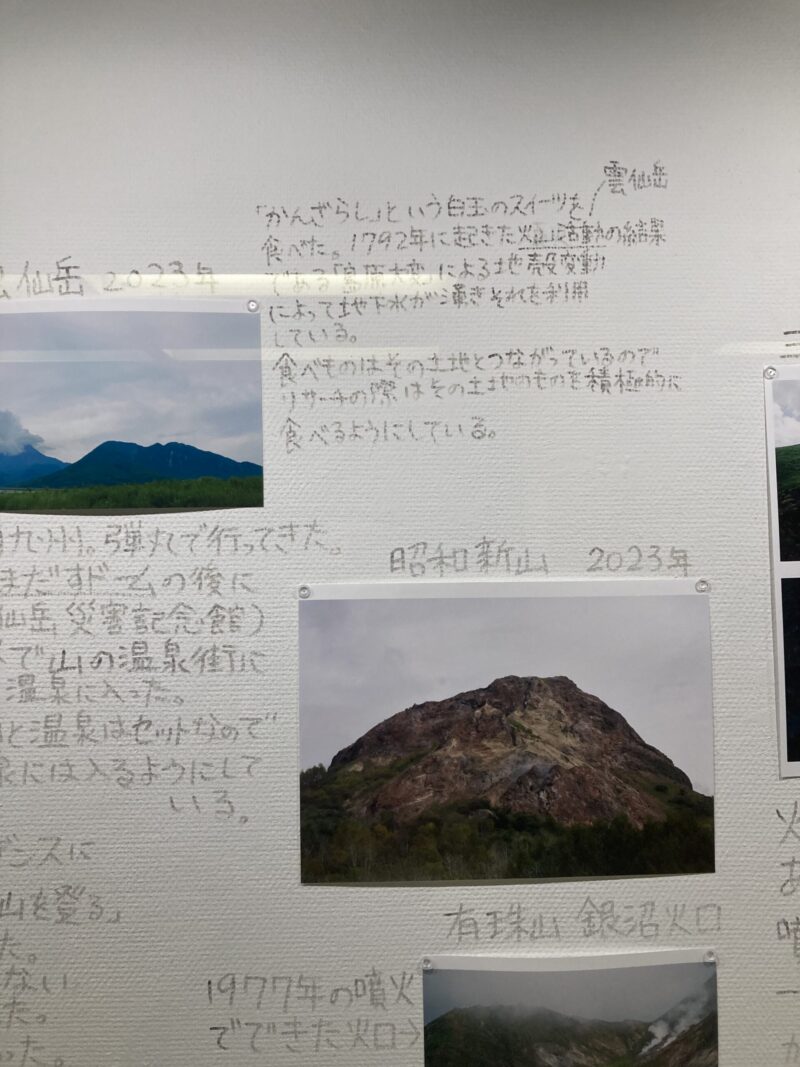 雲仙岳
「かんざらし」という白玉のスイーツを
食べた。1792年に起きた火山活動の結果
である「島原大変」による地殻変動
によって地下水が湧きそれを利用
している。
食べものはその土地とつながっているので
リサーチの際はその土地のものを積極的に
食べるようにしている。
仙岳 2023年
九州。弾丸で行ってきた。
まだすドームの後に
仙岳災害記念館)
で山の温泉街に
温泉に入った。
と温泉はセットなので
には入るようにして
いる。
昭和新山 2023年
デシスに
山を登る」
た。
ない
た。
った。
有珠山 銀沼火口
1977年の噴火
でできた火口→
火
お
噴
一
か